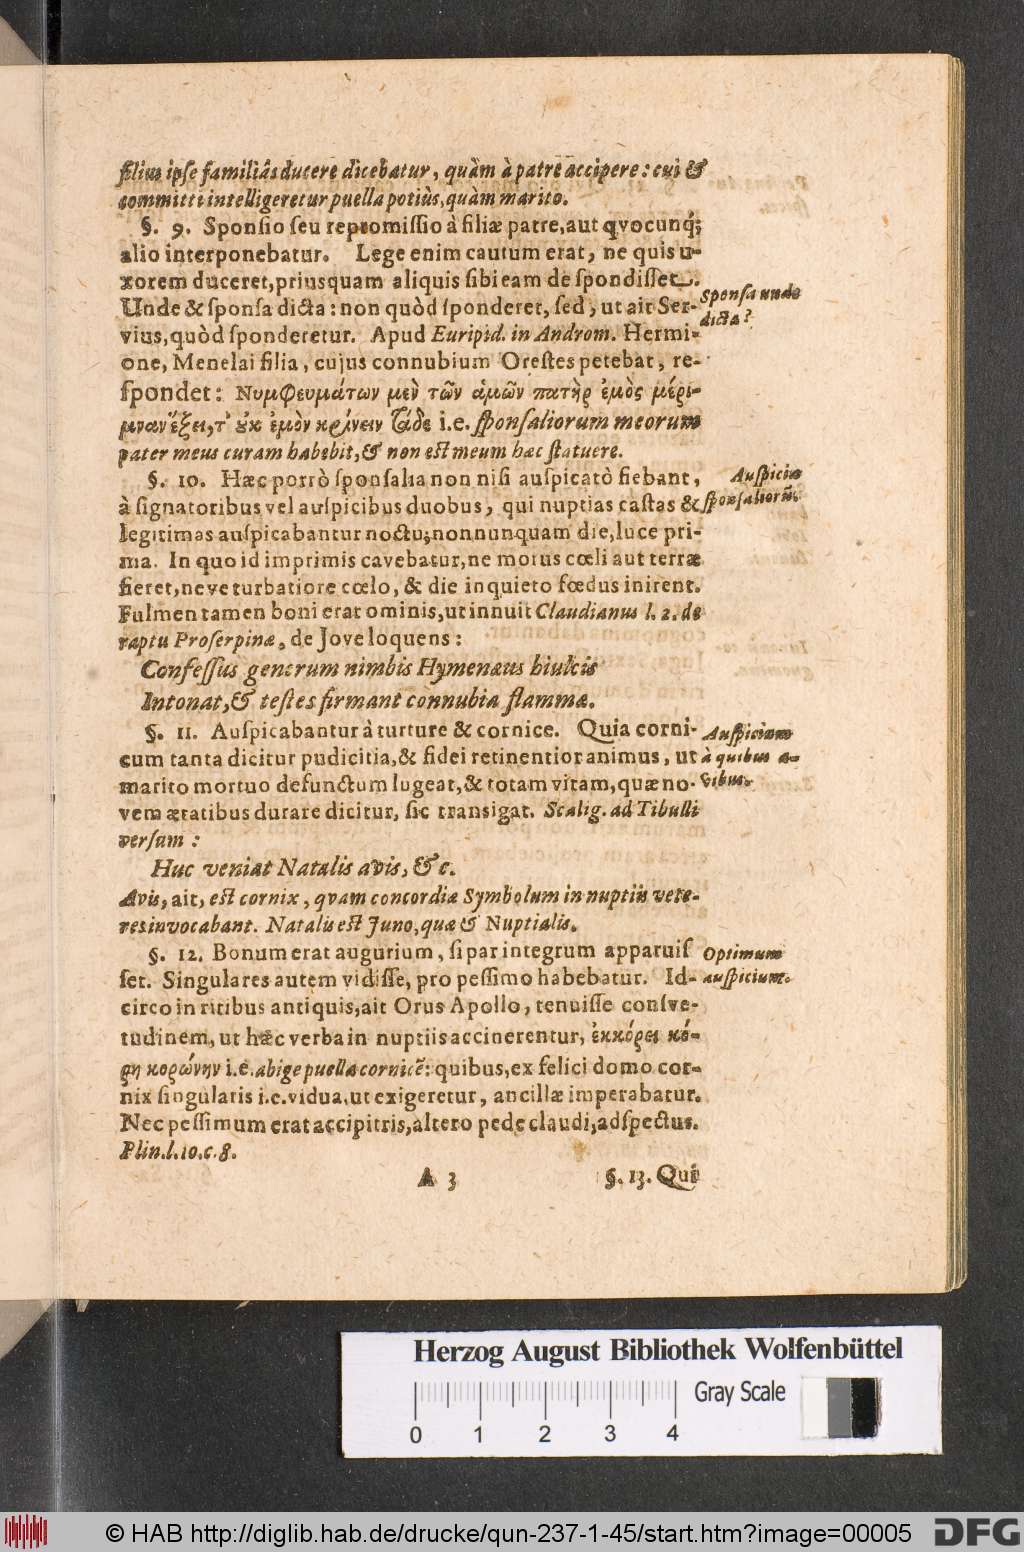 filius ipse familiâs ducere dicebatur, quàm à patre accipere: cui &
committi intelligeretur puella potiùs, quàm marito.
§. 9. Sponsio seu repromissio à filiæ patre, aut qvocunq;
alio interponebatur. Lege enim cautum erat, ne quis u-
xorem duceret, priusquam aliquis sibi eam de spondisset.
Unde & sponsa dicta: non quòd sponderet, sed, ut ait Ser-
Sponsa unde
dicta?
vius, quòd sponderetur. Apud Euripid. in Androm. Hermi-
one, Menelai filia, cujus connubium Orestes petebat, re-
spondet: Νυμφευμάτων μεν τῶν ἀμῶν πατὴρ ἐμὸς μέρι-
μναν ἕξει, τ' ἐκ ἐμὸν κρίνειν τάδε i.e. sponsaliorum meorum
pater meus curam habebit, & non est meum hæc statuere.
§. 10. Hæc porrò sponsalia non nisi auspicatò fiebant,
Auspicia
à signatoribus vel auspicibus duobus, qui nuptias castas &
sponsaliorũ.
legitimas auspicabantur noctu; nonnunquam die, luce pri-
ma. In quo id imprimis cavebatur, ne motus cœli aut terræ
fieret, neve turbatiore cœlo, & die inquieto fœdus inirent.
Fulmen tamen boni erat ominis, ut innuit Claudianus l. 2. de
raptu Proserpinæ, de Jove loquens:
Confessus generum nimbis Hymenæus hiulcis
Intonat, & testes firmant connubia flammæ.
§. 11. Auspicabantur à turture & cornice. Quia corni-
Auspicium
cum tanta dicitur pudicitia, & fidei retinentior animus, ut
à quibus a-
marito mortuo defunctum lugeat, & totam vitam, quæ no-
vibus.
vem ætatibus durare dicitur, sic transigat. Scalig. ad Tibulli
versum:
Huc veniat Natalis avis, &c.
Avis, ait, est cornix, qvam concordiæ Symbolum in nuptiis vete-
res invocabant. Natalis est Juno, quæ & Nuptialis.
§. 12. Bonum erat augurium, si par integrum apparuis
Optimum
set. Singulares autem vidisse, pro pessimo habebatur. Id-
auspicium.
circo in ritibus antiquis, ait Orus Apollo, tenuisse consve-
tudinem, ut hæc verba in nuptiis accinerentur, ἐκκόρει κό-
ρη κορώνην i.e. abige puella cornicẽ: quibus, ex felici domo cor-
nix singularis i.e. vidua, ut exigeretur, ancillæ imperabatur.
Nec pessimum erat accipitris, altero pede claudi, adspectus.
Plin. l. 10. c. 8.
A 3
§. 13. Qui
Herzog August Bibliothek Wolfenbüttel
Gray Scale
0 1 2 3 4
© HAB http://diglib.hab.de/drucke/qun-237-1-45/start.htm?image=00005
DFG